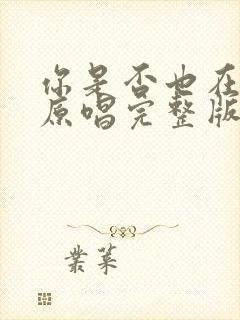 你是否也在
原唱完整版
叢葉